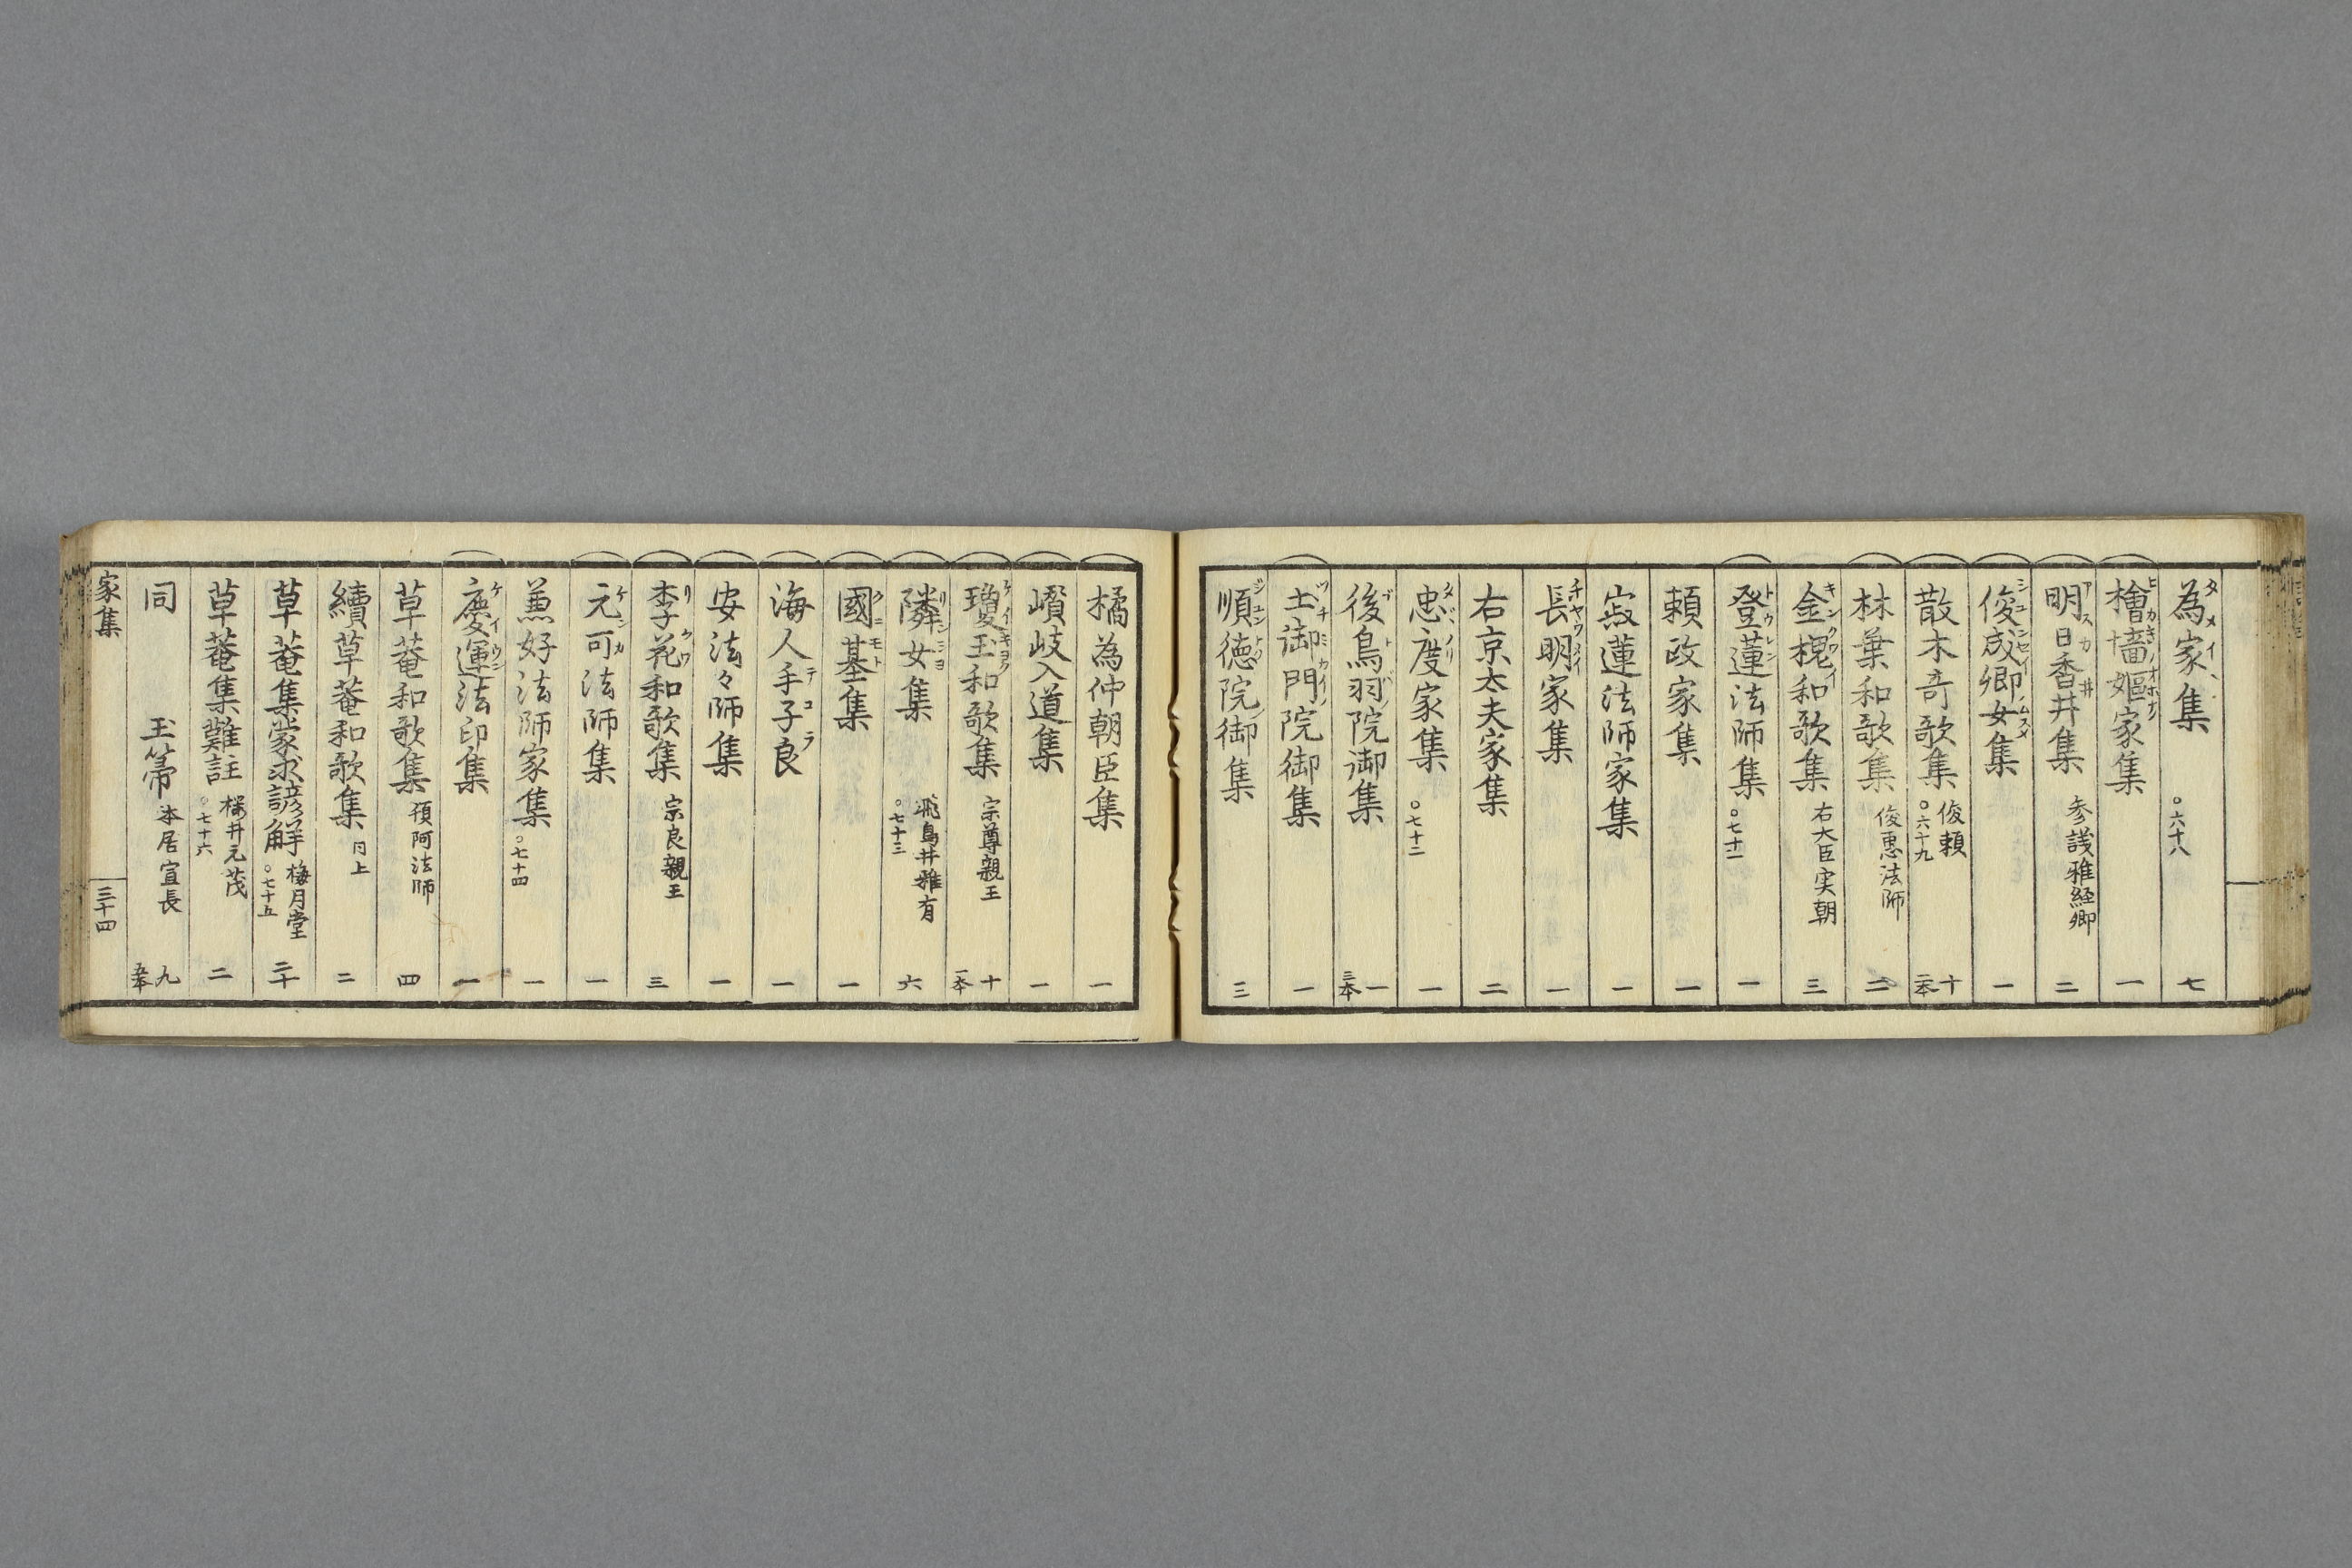 為家集 ○六十八 七
檜墻嫗家集 一
明日香井集 参議雅経卿 二
俊成卿女集 一
散木奇歌集 俊頼 ○六十九 十 二本
林葉和歌集 俊恵法師 二
金槐和歌集 右大臣実朝 三
登蓮法師集 ○七十一 一
頼政家集 一
寂蓮法師家集 一
長明家集 一
右京太夫家集 二
忠度家集 ○七十二 一
後鳥羽院御集 一 三本
土御門院御集 一
順徳院御集 三
橘為仲朝臣集 一
巑岐入道集 一
瓊玉和歌集 宗尊親王 十 一本
隣女集 飛鳥井雅有 ○七十三 六
國基集 一
海人手子良 一
安法々師集 一
李花和歌集 宗良親王 三
元可法師集 一
兼好法師家集 ○七十四 一
慶運法印集 一
草菴和歌集 頓阿法師 四
續草菴和歌集 同上 二
草菴集蒙求諺解 梅月堂 ○七十五 二十
草菴集難註 桜井元茂 ○七十六 二
同 玉箒 本居宣長 九 五本
家集 三十四